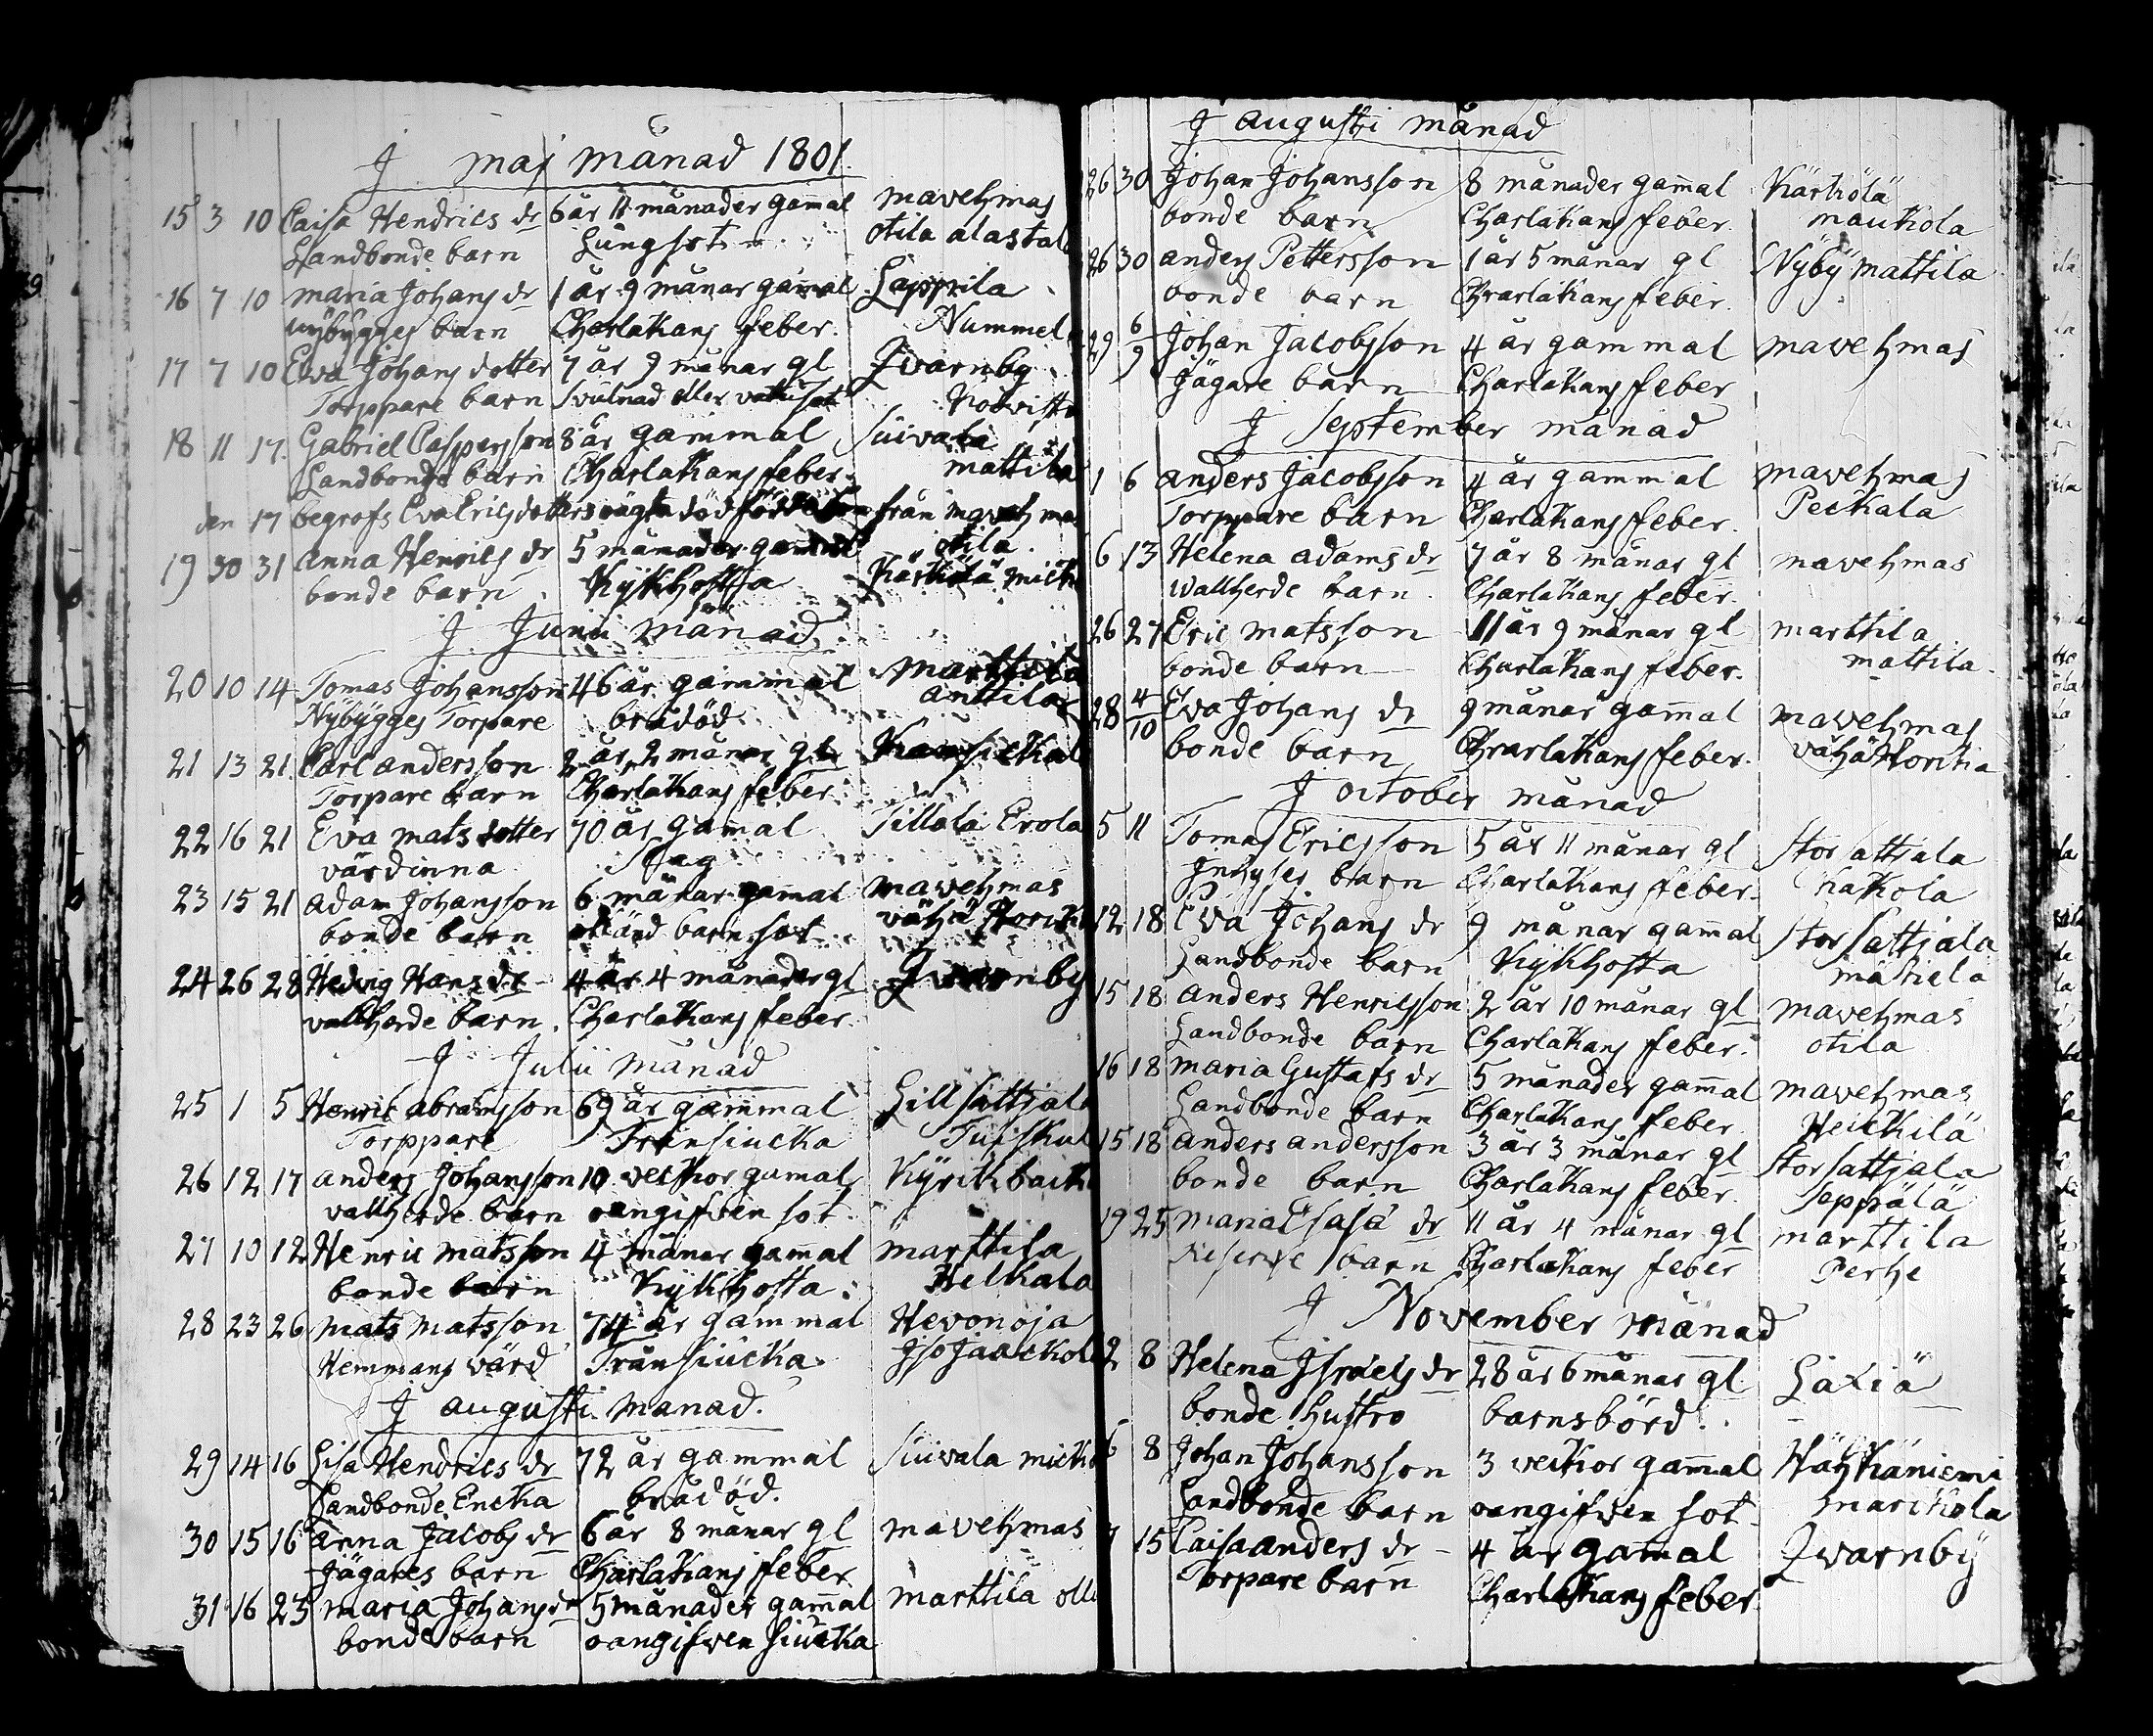 J maj månad 1801
15 3 10 Caisa Hendrics dr 6 år 11 månader gamal mavehmas
Landbonde barn Lungsot otila alastal
16 7 10 maria Johans dr 1 år 9 månar gamal Lapprila
nÿbÿgges barn Charlakans feber. Nummel
17 7 10 Elva Johans dotter 7 år 9 månar gl Qvarnby
Torppare barn Svulnad eller vattusot
18 11 17. Gabriel Caspersson 8 år gammal Suivala
Landbonde barn Charlakans feber. mattila
den 17 begrofs Eva Erics dotters från mavehmas
otila.
19 30 31 anna Henrics dr 5 månader gammal Kärkölä mick
bonde barn Kÿkhosta
J Junii månad
20 10 14 Tomas Johansson 46 år gammal marttila
Nÿbÿgges Torpare brådöd anttila
21 13 21. Carl andersson 2 år 2 månar gl
Torpare barn Charlakans feber
22 16 21 Eva mats dotter 70 år gamal Tillola Erola
värdinna Slag
23 15 21 adam Johansson 6 månar gamal mavehmas
bonde barn okänd barn sot vähä
24 26 28 Hedvig Hans dr 4 år 4 månader gl Qvarnby
vallherde barn. Charlakans feber
J Julii månad
25 1 5 Henric abramsson 69 år gammal Lill sattjala
Torppare Transiucka Tuiskul
26 12 17 anders Johansson 10 veckor gamal
vallherde barn oangifven sot
27 10 12 Henric matsson 4 månar gamal marttila
bonde barn Kÿkhosta.
28 23 26 mats matsson 74 år gammal Hevonoja
Hemmans värd Transiucka. Jso Jaackol
J augusti månad.
29 14 16 Lisa Hendrics dr 72 år gammal Suivala mick
Landbonde Encka brådöd.
30 15 16 anna Jacobs dr 6 år 8 månar gl mavehmas
Jägares barn Charlakans feber
31 16 23 maria Johans dr 5 månader gamal marttila olli
bonde barn oangifven siucka
J augusti månad
26 30 Johan Johansson 8 månader gamal Kärkölä
bonde barn Charlakans feber. maukola
26 30 anders Pettersson 1 år 5 månar gl Nÿbÿ mattila
bonde barn Charlakans feber.
29 6/9 Johan Jacobsson 4 år gammal mavehmas
Jägare barn Charlakans feber
J September månad
1 6 anders Jacobsson 4 år gammal mavehmas
Torppare barn Charlakans feber. Peckala
6 13 Helena adams dr 7 år 8 månar gl mavehmas
Wallherde barn. Charlakans feber.
26 27 Eric matsson 11 år 9 månar gl marttila
bonde barn Charlakans feber. mattila.
28 4/10 Eva Johans dr 9 månar gamal mavehmas
bonde barn Charlakans feber. vähä
J october månad
5 11 Tomas Ericsson 5 år 11 månar gl Stor sattiala
Jnhyses barn Charlakans feber. Kakola
12 18 Eva Johans dr 9 månar gammal Stor sattiala
Landbonde barn Kÿkhosta mäkelä
15 18 anders Henricsson 2 år 10 månar gl mavehmas
Landbonde barn Charlakans feber. otila
16 18 maria Gustafs dr 5 månader gammal mavehmas
Landbonde barn Charlakans feber. Heickilä
15 18 anders andersson 3 år 3 månar gl Stor sattjala
bonde barn Charlakans feber. Seppälä
19 25 maria Esasä dr 11 år 4 månar gl marttila
barn Charlakans feber Perhe
J November månad
2 8 Helena Jsraels dr 28 år 6 månar gl Laxiä
bonde hustro barnsbörd.
6 8 Johan Johansson 3 veckor gammal Häÿhäniemi
Landbonde barn oangifven sot marckola
7 15 Caisa anders dr 4 år gamal Qvarnbÿ
Torpare barn Charlakans feber.